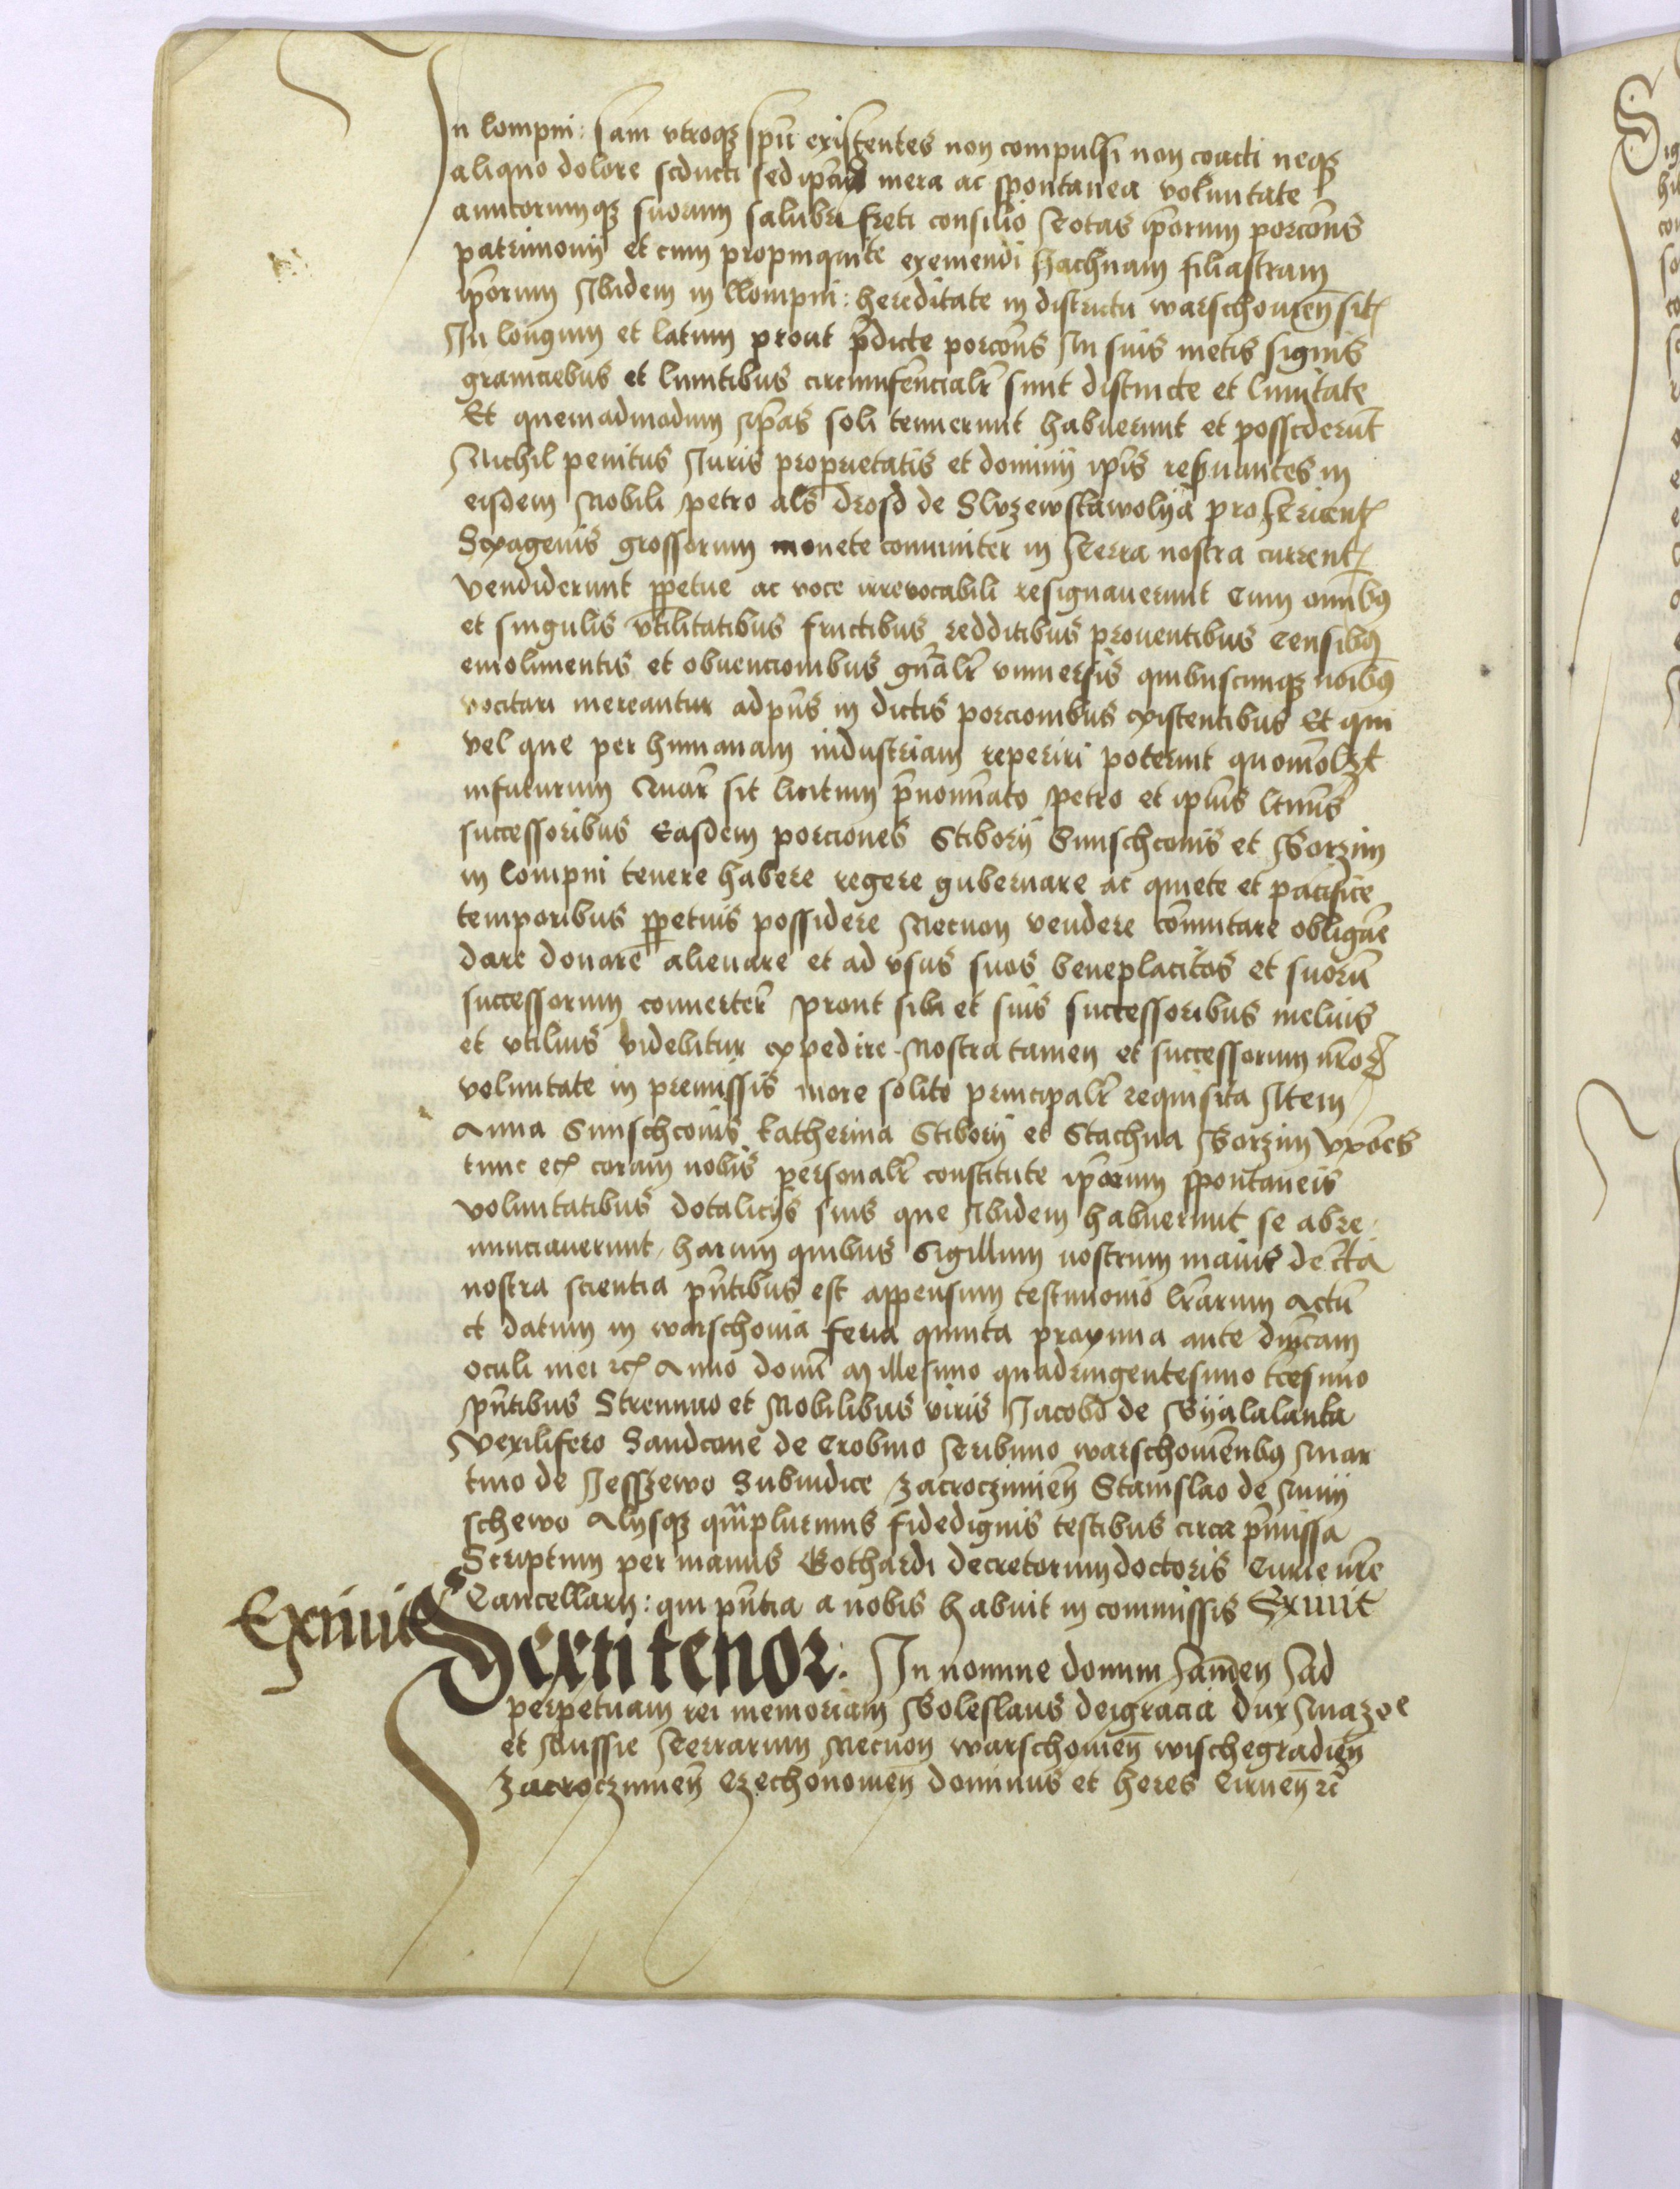 In lompni: sani vtroq spū existentes non compulsi non coacti neq
aliquo dolore seducti sed mera ac spontanea voluntate
amicorumq suorum salubri freti consilio Totas ip̄orum porcōns
patrimonij et cum propinquite exemendi Hachnam filiastram
ip̄orum Ibidem in llompni: hereditate in districtu warschouieñ sit
In longum et latum prout p̄dicte porcōns In suis metis signis
graniciebus et limitibus circumfēncialr̄ sunt distincte et limitate
Et quemadmodum ip̄as soli tenuerunt habuerunt et possederūt
Nichil penitus Iuris proprietatis et dominij ip̄is reseruantes in
eisdem Nobili petro als drosd de Sluzewskawolya pro Tricent
Sexagenis grossorum monete comuniter in Terra nostra current
vendiderunt ppetue ac voce irreuocabili resignauerunt Cum omib9
et singulis vtilitatibus fructibus redditibus prouentibus Censib9
emolimentis et obuencionibus gn̄alr̄ vniuersis quibuscunq noib9
vocitari mereantur ad pn̄s in dictis porcionibus existentibus Et qui
vel que per humanam industriam reperiri poterint quomōlzt
infuturum Quar̄ sit licitum p̄nomīato petro et ip̄ius ltimis
successoribus Easdem porciones Stiborij Sunschconis et Borzim
in lompni tenere habere regere gubernare ac quiete et pacifice
temporibus ppetuis possidere Necnon vendere cōmutare obligāre
dare donare alienare et ad vsus suos beneplacitos et suorū
successorum conuerter̄ prout sibi et suis successoribus melius
et vtilius videbitur expedire. Nostra tamen et successorum nr̄o
voluntate in premissis more solito principalr̄ requisita Item
Anna Sunschconis katherina Stiborij et Stachna Borzim vxōes
tunc ec coram nobis personalr̄ constitute ip̄orum spontaneis
voluntatibus dotalicijs suis que Ibidem habuerunt se abre
nunciauerunt, harum quibus Sigillum nostrum maius de cta
nostra scientia pn̄tibus est appensum testimonio lr̄arum Actū
et datum in warschouia feria quinta proxima ante dn̄icam
oculi mei rc Anno domī Millesimo quadringentesimo tcesimo
pn̄tibus Strennuo et Nobilibus viris Jacobo de Byalalanka
Vexilifero Sandcone de Crobino Tribuno warschouien̄b9 Mar
tino de Jesszewo Subiudice zacroczimien̄ Stanislao de Mnij
schewo Alysq qmplurimis fidedignis testibus circa p̄missa
Scriptum per manus Gothardi decretorum doctoris Curie nr̄e
Cancellarij: qui pn̄tia a nobis habuit in commissis Exiuit
Exiuit
Sexti tenor. In nomine domini amen ad
perpetuam rei memoriam Boleslaus dei gracia dux Mazoe
et Russie Terrarum Necnon warschouien̄ wischegradien̄
zacroczimien̄ Czechonouien̄ dominus et heres Ciruen̄ rc